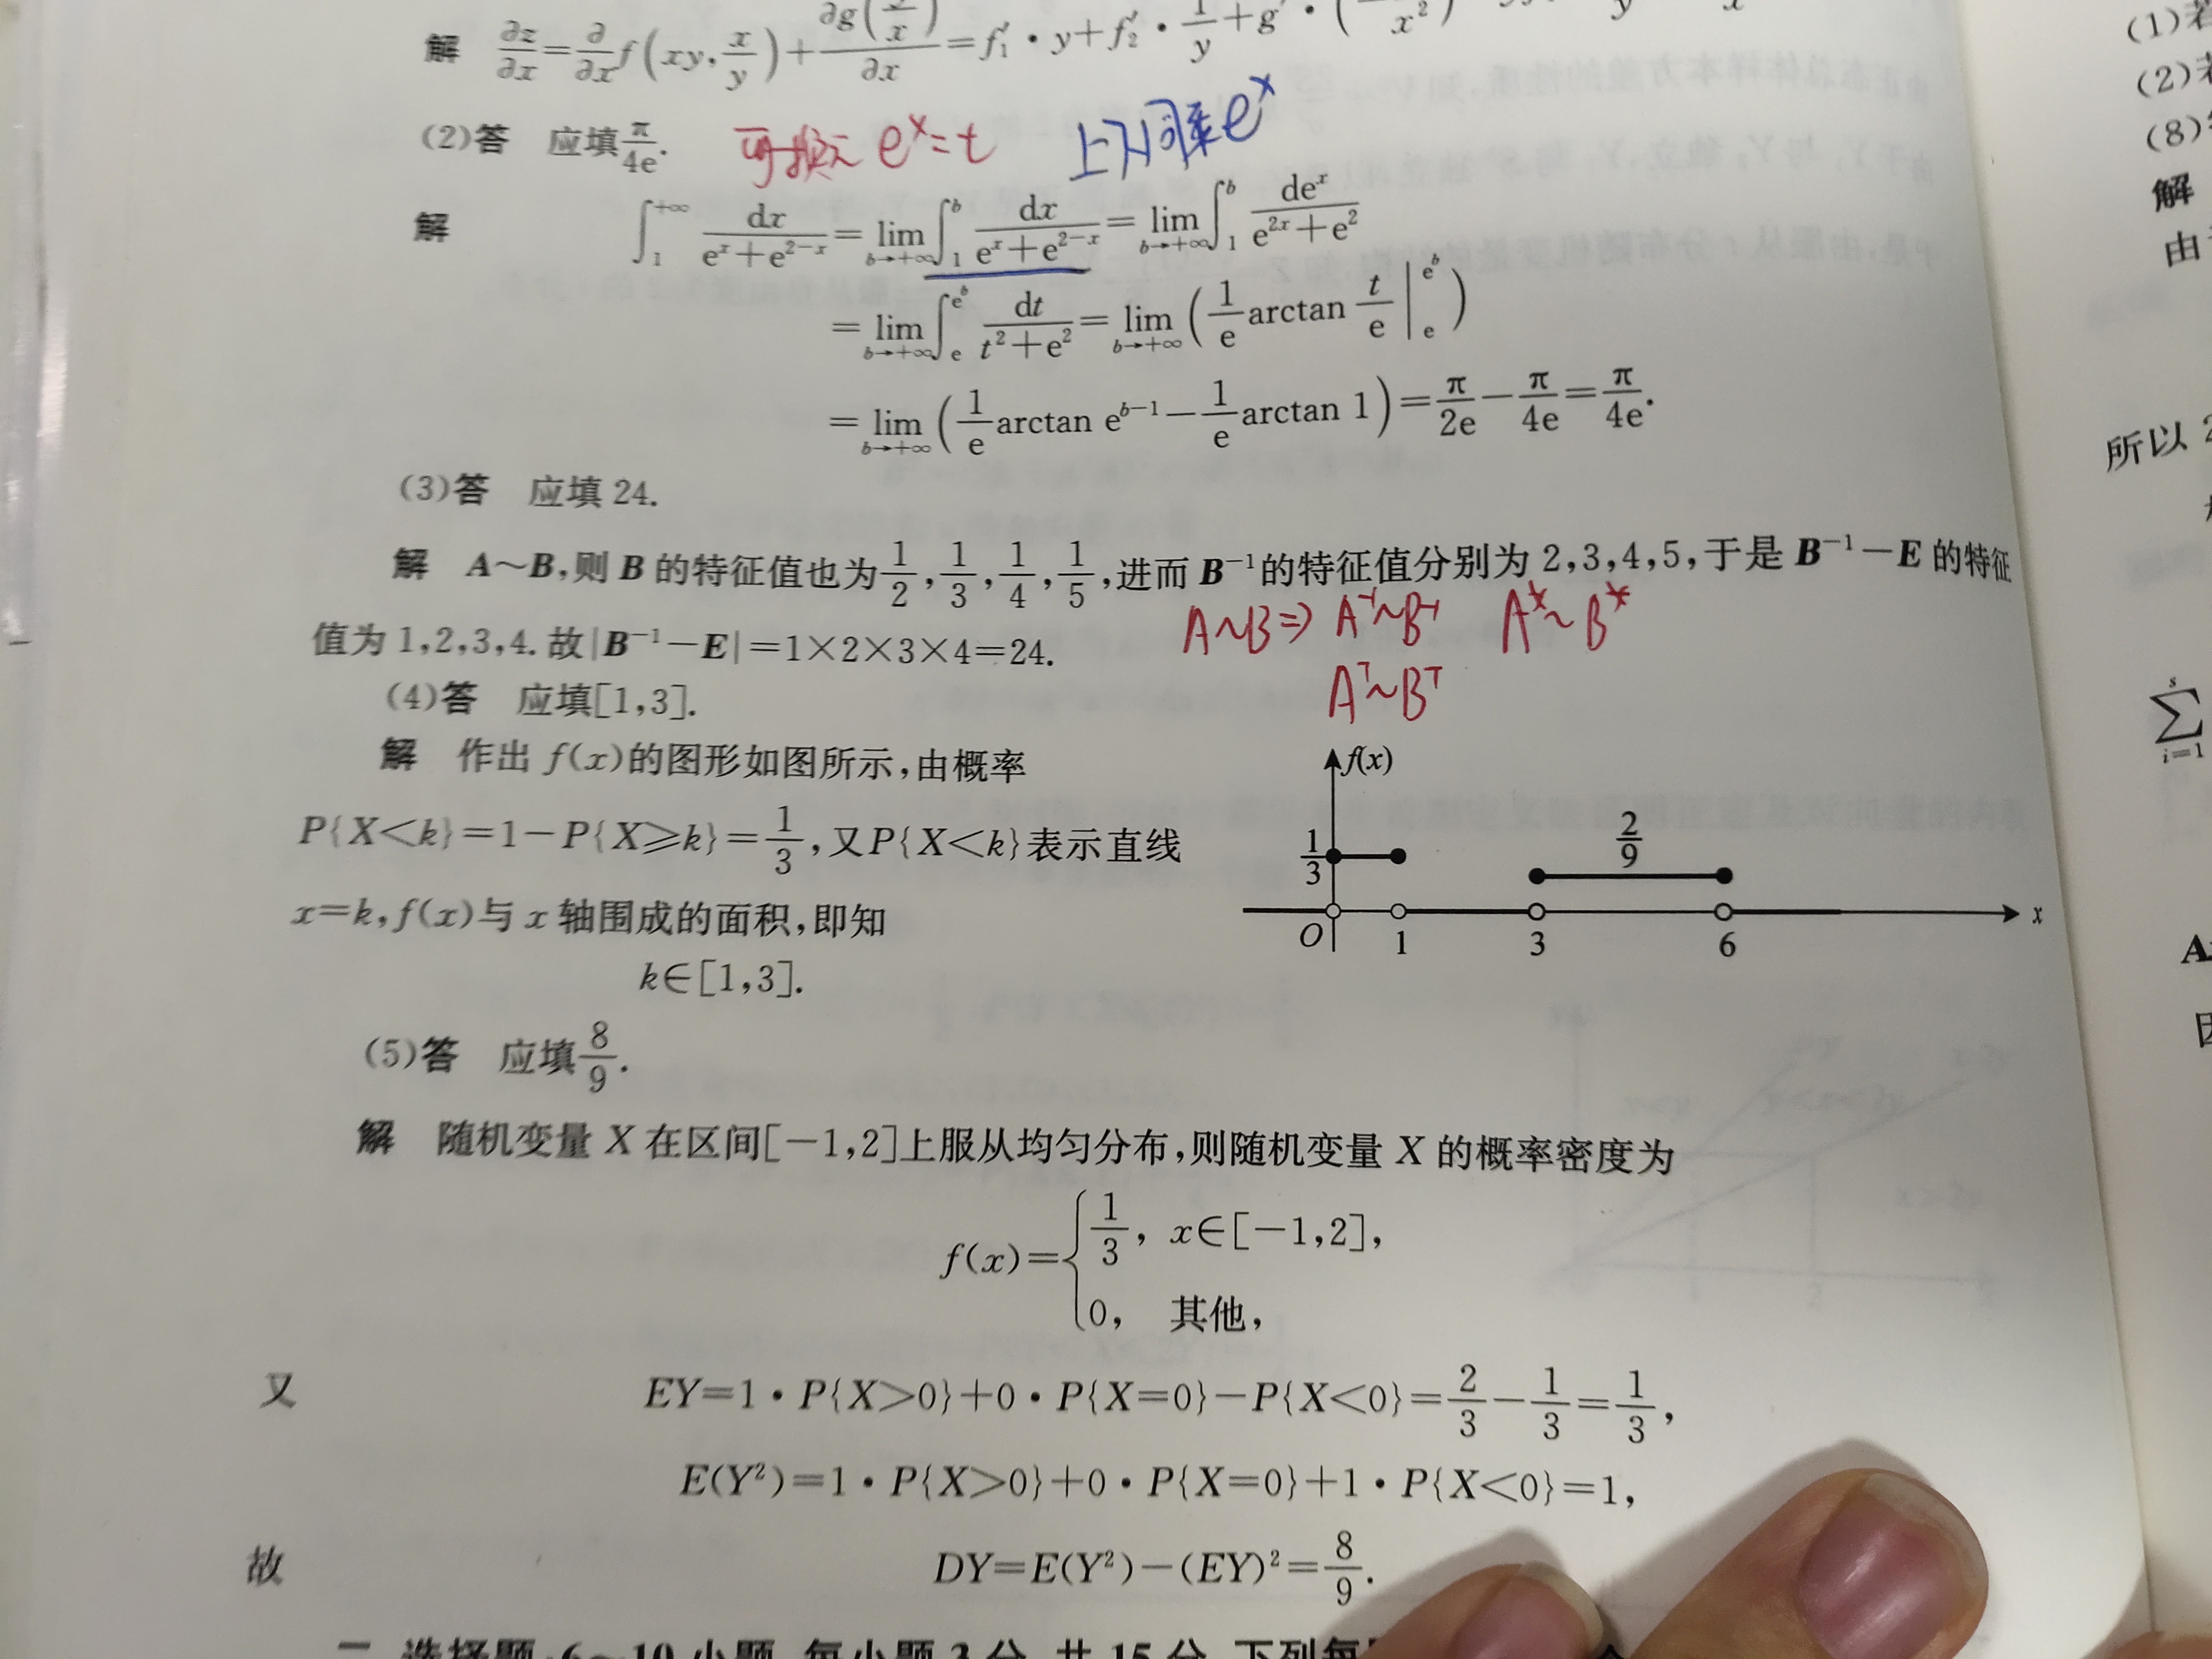 解 ∂z/∂x=∂/∂x f(xy,x/y)+∂g(y/x)/∂x=f₁′·y+f₂′·1/y+g′·(
(2)答 应填π/4e. 可换元 eˣ=t 上下同乘eˣ
解 ∫₁^{+∞} dx/(eˣ+e^{2−x})=lim_{b→+∞}∫₁^b dx/(eˣ+e^{2−x})=lim_{b→+∞}∫₁^b deˣ/(e^{2x}+e²)
=lim_{b→+∞}∫_e^{e^b} dt/(t²+e²)=lim_{b→+∞}(1/e arctan t/e |_e^{e^b})
=lim_{b→+∞}(1/e arctan e^{b−1}−1/e arctan 1)=π/2e−π/4e=π/4e.
(3)答 应填 24.
解 A~B,则 B 的特征值也为1/2,1/3,1/4,1/5,进而 B⁻¹的特征值分别为 2,3,4,5,于是 B⁻¹−E 的特征
值为 1,2,3,4. 故|B⁻¹−E|=1×2×3×4=24.
A~B⇒ A⁻¹~B⁻¹ A*~B*
Aᵀ~Bᵀ
(4)答 应填[1,3].
解 作出 f(x)的图形如图所示,由概率
P{X<k}=1−P{X≥k}=1/3,又P{X<k}表示直线
x=k,f(x)与 x 轴围成的面积,即知
k∈[1,3].
f(x)
1/3
2/9
O 1 3 6 x
(5)答 应填8/9.
解 随机变量 X 在区间[−1,2]上服从均匀分布,则随机变量 X 的概率密度为
f(x)={1/3, x∈[−1,2],
0, 其他,
又 EY=1·P{X>0}+0·P{X=0}−P{X<0}=2/3−1/3=1/3,
E(Y²)=1·P{X>0}+0·P{X=0}+1·P{X<0}=1,
故 DY=E(Y²)−(EY)²=8/9.
二、选择题:6~10小题,每小题3分,共15分.下列每
(1)若
(2)若
(8)
解
由
所以
∑_{i=1}^s
A
因